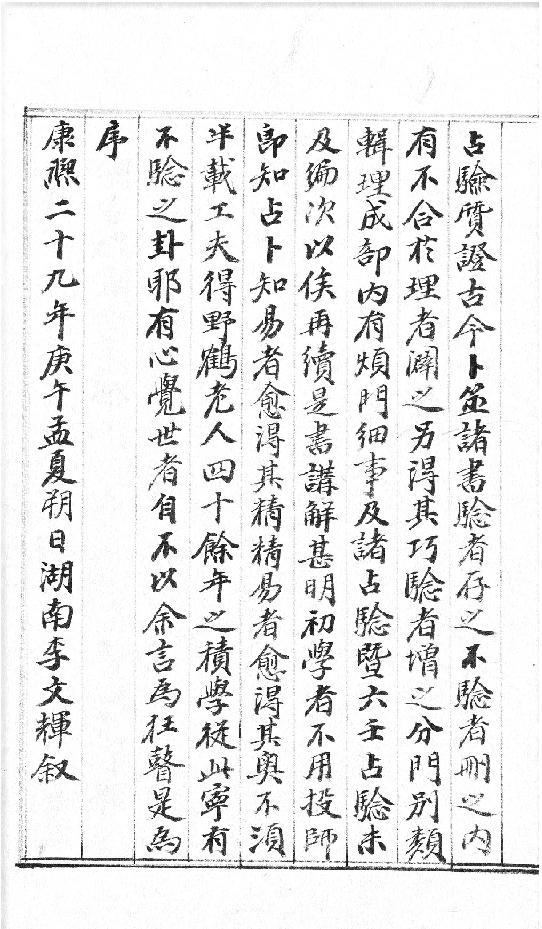 占驗質證古今卜筮諸書驗者存之不驗者刪之内
有不合於理者闢之另得其巧驗者增之分門別類
輯理成部内有煩門細事及諸占驗暨六壬占驗未
及編次以俟再續是書講解甚明初學者不用投師
即知占卜知易者愈得其精精易者愈得其奧不須
半載工夫得野鶴老人四十餘年之積學從此寧有
不驗之卦耶有心覺世者自不以余言為狂瞽是為
序
康熙二十九年庚午孟夏朔日湖南李文輝叙